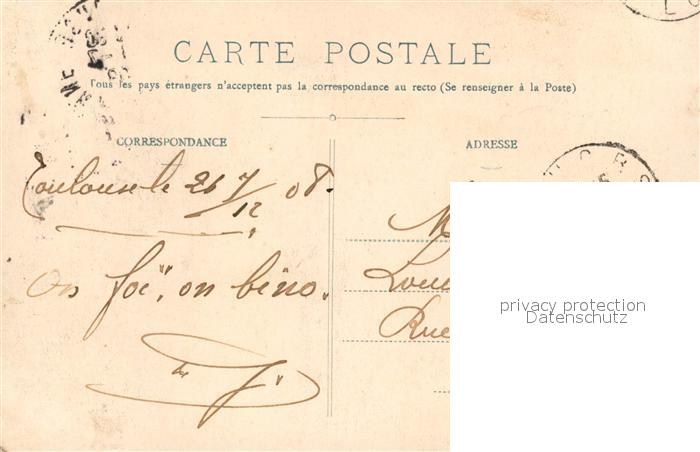 CARTE POSTALE
Tous les pays étrangers n'acceptent pas la correspondance au recto (Se renseigner à la Poste)
CORRESPONDANCE
ADRESSE
Toulouse le 21 7/12 08.
On foï, on béno.
M
Loui
Rue
privacy protection
Datenschutz